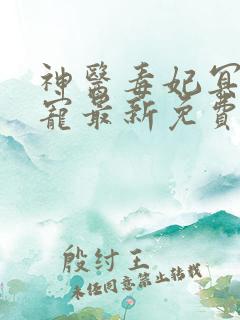 神醫毒妃冥
寵最新免費
殷纣王
未经同意禁止转载